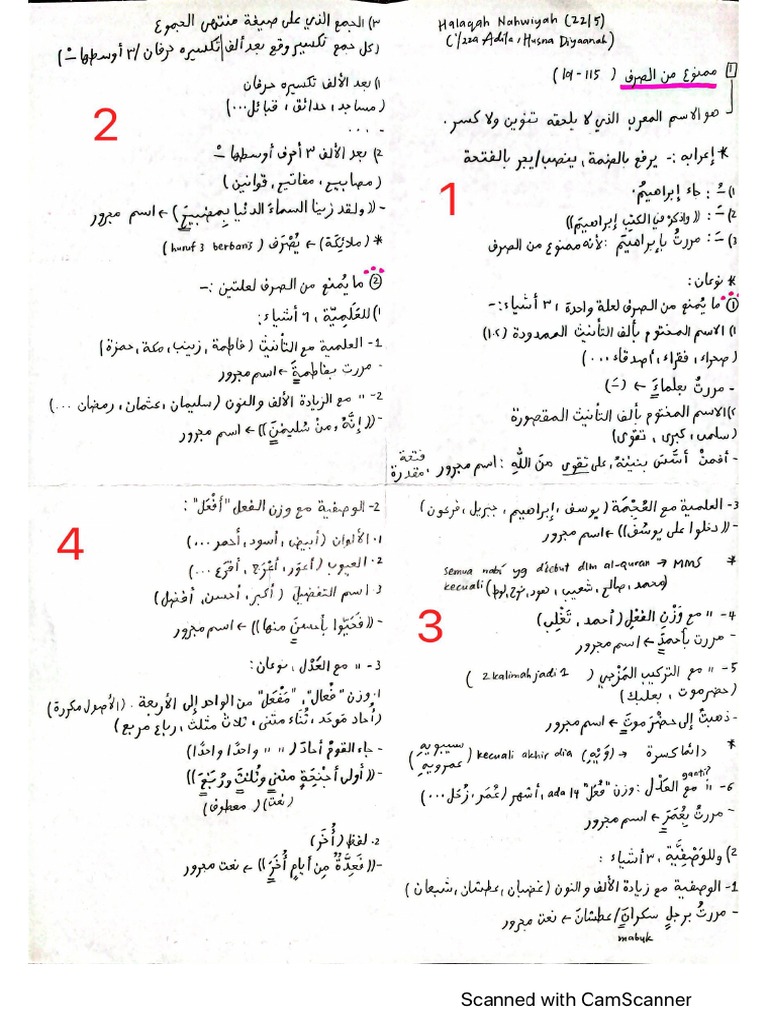 Halaqah Nahwiyah (22/5)
('Izza Adila, Husna Diyaanah)
1 ممنوع من الصرف (101-115)
هو الاسم المعرب الذي لا يلحقه تنوين ولا كسر.
* إعرابه :- يرفع بالضمة, ينصب/يجر بالفتحة
1) ـُ : جاء إبراهيمُ.
2) ـَ : ((واذكر في الكتٰب إبراهيمَ))
3) ـَ : مررتُ بإبراهيمَ : لأنه ممنوع من الصرف
1
* نوعان :
① ما يُمنع من الصرف لعلة واحدة, ٣ أشياء :-
1) الاسم المختوم بألف التأنيث الممدودة (102)
(صحراء, فقراء, أصدقاء ...)
- مررتُ بعلماءَ ← (ـَ)
2) الاسم المختوم بألف التأنيث المقصورة
(سلمى, كبرى, تقوى)
- أفمنْ أسَّسَ بنيٰنهُ, على تقوى منَ اللّهِ : اسم مجرور, فتحة مقدرة
٣) الجمع الذي على صيغة منتهى الجموع
(كل جمع تكسير وقع بعد ألف تكسيره حرفان /٣ أوسطها ـْ)
1) بعد الألف تكسيره حرفان
(مساجد, حدائق, قبائل...)
- ...
2
2) بعد الألف ٣ أحرف أوسطها ـْ
(مصابيح, مفاتيح, قوانين)
- ((ولقد زينا السماءَ الدنيا بِمصٰبيحَ)) ← اسم مجرور
* (ملائكة) ← يُصْرَف (huruf 3 berbaris)
② ما يُمنع من الصرف لعلتين :-
1) للعَلَمِيّة, ٦ أشياء :
1- العلمية مع التأنيث (فاطمة, زينب, مكة, حمزة)
- مررت بفاطمةَ ← اسم مجرور
2- " مع الزيادة الألف والنون (سليمان, عثمان, رمضان ...)
- ((إنَّهُ ومنْ سُليمٰنَ)) ← اسم مجرور
3- العلمية مع العُجْمَة (يوسف, إبراهيم, جبريل, فرعون)
- ((دخلوا على يوسُفَ)) ← اسم مجرور
* semua nabi yg disebut dlm al-quran → MMS
kecuali (محمد, صالح, شعيب, هود, نوح, لوط)
3
4- " مع وَزْنِ الفعْلِ (أحمد, تَغْلِب)
- مررت بأحمدَ ← اسم مجرور
5- " مع التركيب المَزْجي (2 kalimah jadi 1)
(حضرموت, بعلبك)
- ذهبتُ إلى حضْرَموتَ ← اسم مجرور
* دائما كسرة → (وَيْهِ) kecuali akhir dia (سيبويهِ عمرويهِ)
ganti?
6- " مع العَدْل : وزن "فُعَل" ada 14, أشهر (عُمَر, زُحَل ...)
- مررتُ بِعُمَرَ ← اسم مجرور
2) وللوَصْفِيَّة, ٣ أشياء :
1- الوصفية مع زيادة الألف والنون (غضبان, عطشان, شبعان)
- مررتُ برجلٍ سكرانَ/عطشانَ ← نعت مجرور
mabuk
2- الوصفية مع وزن الفعل "أَفْعَل" :
1. الألوان (أبيض, أسود, أحمر ...)
2. العيوب (أعوَر, أعْرَج, أقرَع ...)
3. اسم التفضيل (أكبر, أحسن, أفضل)
- ((فَحَيّوا بأحسنَ منها)) ← اسم مجرور
4
3- " مع العَدْل, نوعان :
1. وزن "فُعال", "مَفْعَل" من الواحد إلى الأربعة. (الأصول مكررة)
(أُحاد مَوحَد, ثُنَاء مثنى, ثلاث مثلث, رباع مربع)
- جاء القومُ أحادَ (" " واحدًا واحدًا)
- ((أولى أجنْحَةٍ مثنى وثُلٰثَ ورُبٰعَ))
(نعت) (معطوف)
2. لفظ (أُخَر)
- ((فَعِدَّةٌ مِن أيامٍ أُخَرَ)) ← نعت مجرور
Scanned with CamScanner